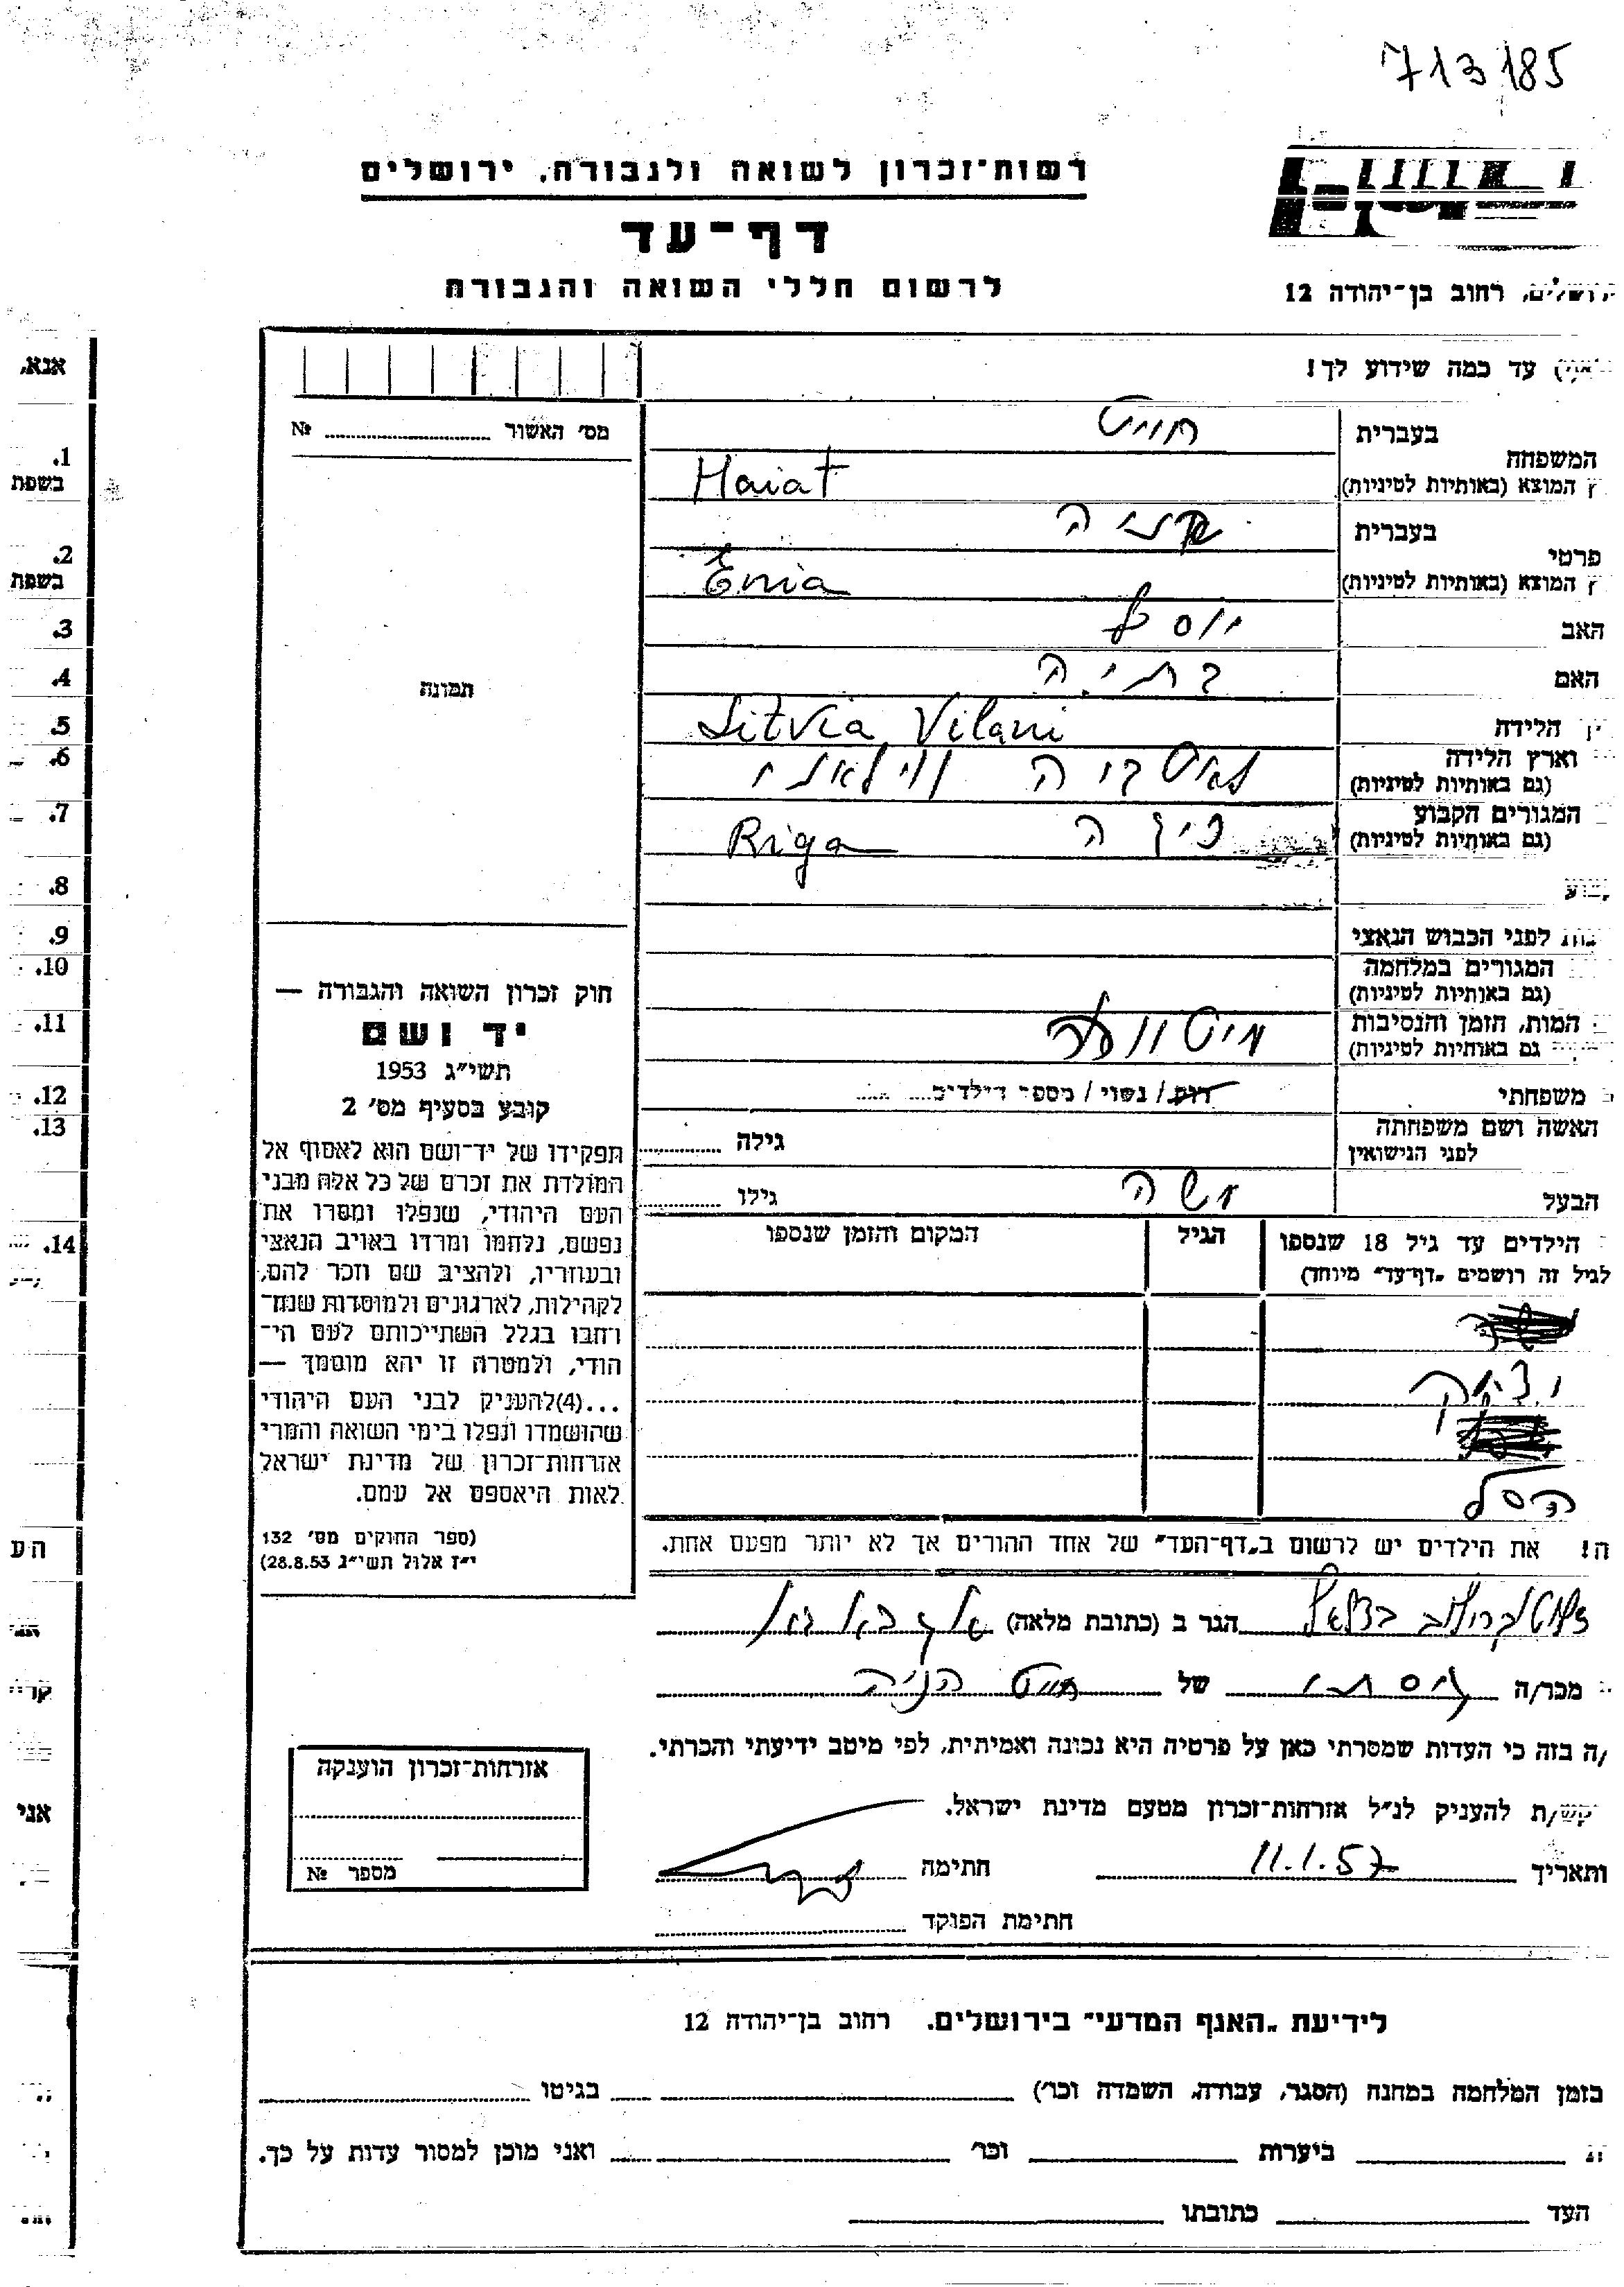 713185
רשות־זכרון לשואה ולגבורה, ירושלים
דף־עד
לרשום חללי השואה והגבורה
ירושלים, רחוב בן־יהודה 12
עד כמה שידוע לך!
אנא,
מס׳ האשור ........ №
בעברית חייט
המשפחה
ץ המוצא (באותיות לטיניות) Haiat
בעברית
פרטי
ץ המוצא (באותיות לטיניות) Enia
האב יוסף
האם בתיה
הלידה Litvia Vilani
וארץ הלידה
(גם באותיות לטיניות)
המגורים הקבוע Riga ריגה
(גם באותיות לטיניות)
לפני הכבוש הנאצי
המגורים במלחמה
(גם באותיות לטיניות)
המות, הזמן והנסיבות
גם באותיות לטיניות)
משפחתי רוק / נשוי / מספר הילדים........
האשה ושם משפחתה
לפני הנישואין
גילה ........
הבעל משה
גילו ........
הילדים עד גיל 18 שנספו
הגיל
המקום והזמן שנספו
לגיל זה רושמים „דף־עד״ מיוחד)
תמונה
חוק זכרון השואה והגבורה —
יד ושם
תשי״ג 1953
קובע בסעיף מס׳ 2
תפקידו של יד־ושם הוא לאסוף אל
המולדת את זכרם של כל אלה מבני
העם היהודי, שנפלו ומסרו את
נפשם, נלחמו ומרדו באויב הנאצי
ובעוזריו, ולהציב שם וזכר להם,
לקהילות, לארגונים ולמוסדות שנח־
רחבו בגלל השתייכותם לעם הי־
הודי, ולמטרה זו יהא מוסמך —
...(4)להעניק לבני העם היהודי
שהושמדו ונפלו בימי השואה והמרי
אזרחות־זכרון של מדינת ישראל
לאות היאספם אל עמם.
(ספר החוקים מס׳ 132
י״ז אלול תשי״ג 28.8.53)
ה! את הילדים יש לרשום ב„דף־העד״ של אחד ההורים אך לא יותר מפעם אחת.
הגר ב (כתובת מלאה)
מכר/ה גיסתי של חייט הניה
/ה בזה כי העדות שמסרתי כאן על פרטיה היא נכונה ואמיתית, לפי מיטב ידיעתי והכרתי.
קש/ת להעניק לנ״ל אזרחות־זכרון מטעם מדינת ישראל.
ותאריך 11.1.57 חתימה
חתימת הפוקד
אזרחות־זכרון הוענקה
מספר №
לידיעת „האגף המדעי״ בירושלים. רחוב בן־יהודה 12
בזמן המלחמה במחנה (הסגר, עבודה, השמדה וכר׳) בגיטו
ביערות וכר׳ ואני מוכן למסור עדות על כך.
העד כתובתו
1.
בשפת
2.
בשפת
3.
4.
5.
6.
7.
8.
9.
10.
11.
12.
13.
14.
הע
קרי
אני